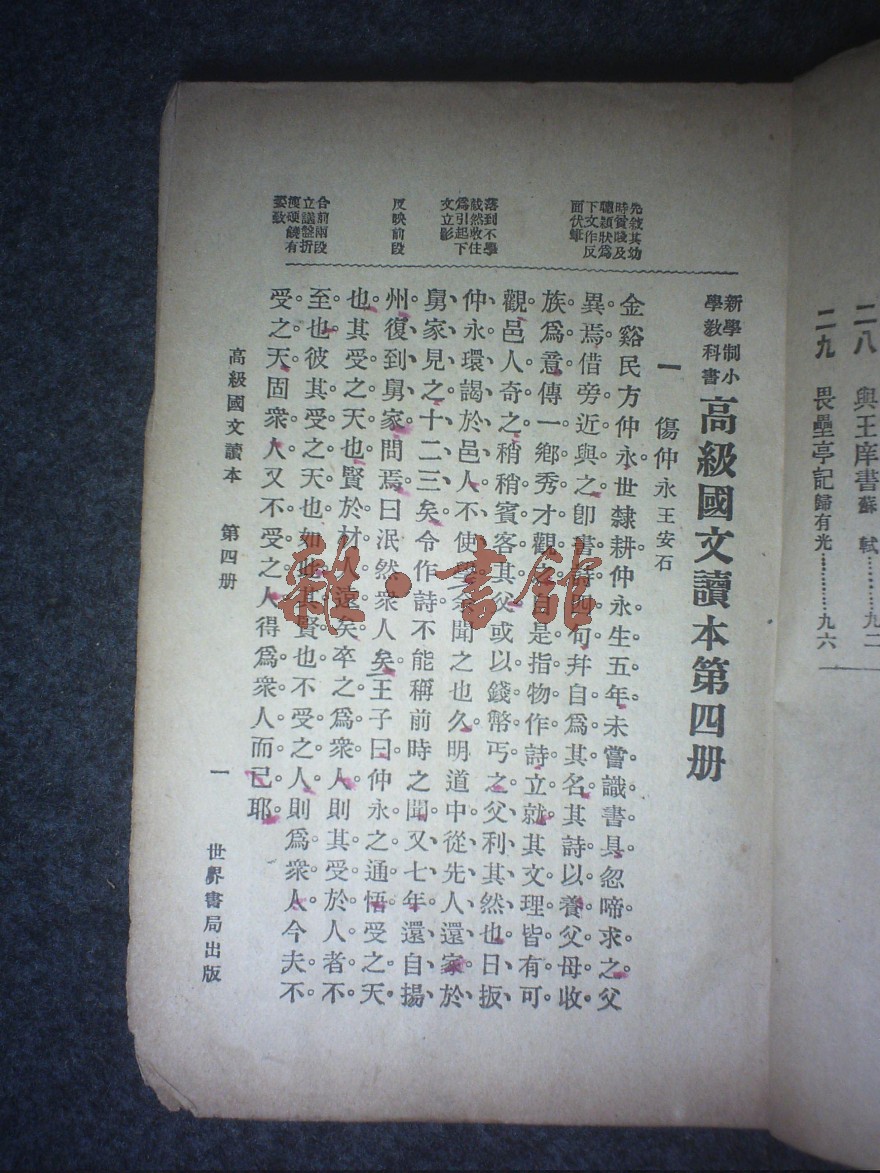 二八 與王庠書 蘇軾…………九二
二九 畏壘亭記 歸有光…………九六
新學制小學教科書 高級國文讀本第四册
一 傷仲永 王安石
先敍其幼
時資陵及
聰穎狀爲
下文作反
面伏筆
落到不學
戞然收住
爲引起下
文立影
反映前段
合前兩段
立議盤折
瘦硬饒有
委致
金谿民方仲永世隸耕仲永生五年未嘗識書具忽啼求之父
異焉借旁近與之卽書詩四句幷自爲其名其詩以養父母收
族爲意傳一鄉秀才觀之自是指物作詩立就其文理皆有可
觀邑人奇之稍稍賓客其父或以錢幣丐之父利其然也日扳
仲永環謁於邑人不使學余聞之也久明道中從先人還家於
舅家見之十二三矣令作詩不能稱前時之聞又七年還自揚
州復到舅家問焉曰泯然衆人矣王子曰仲永之通悟受之天
也其受之天也賢於材人遠矣卒之爲衆人則其受於人者不
至也彼其受之天也如此其賢也不受之人則爲衆人今夫不
受之天固衆人又不受之人得爲衆人而已耶
高級國文讀本 第四册
一
世界書局出版
雜·書館